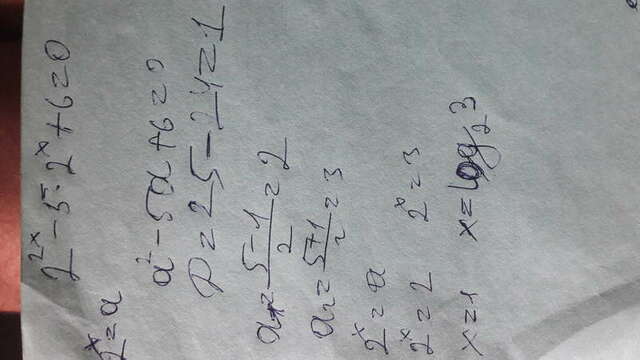 2^{2x} - 5 · 2^x + 6 = 0
2^x = a
a^2 - 5a + 6 = 0
D = 25 - 24 = 1
a_1 = \frac{5-1}{2} = 2
a_2 = \frac{5+1}{2} = 3
2^x = a
2^x = 2 2^x = 3
x = 1 x = log_2 3